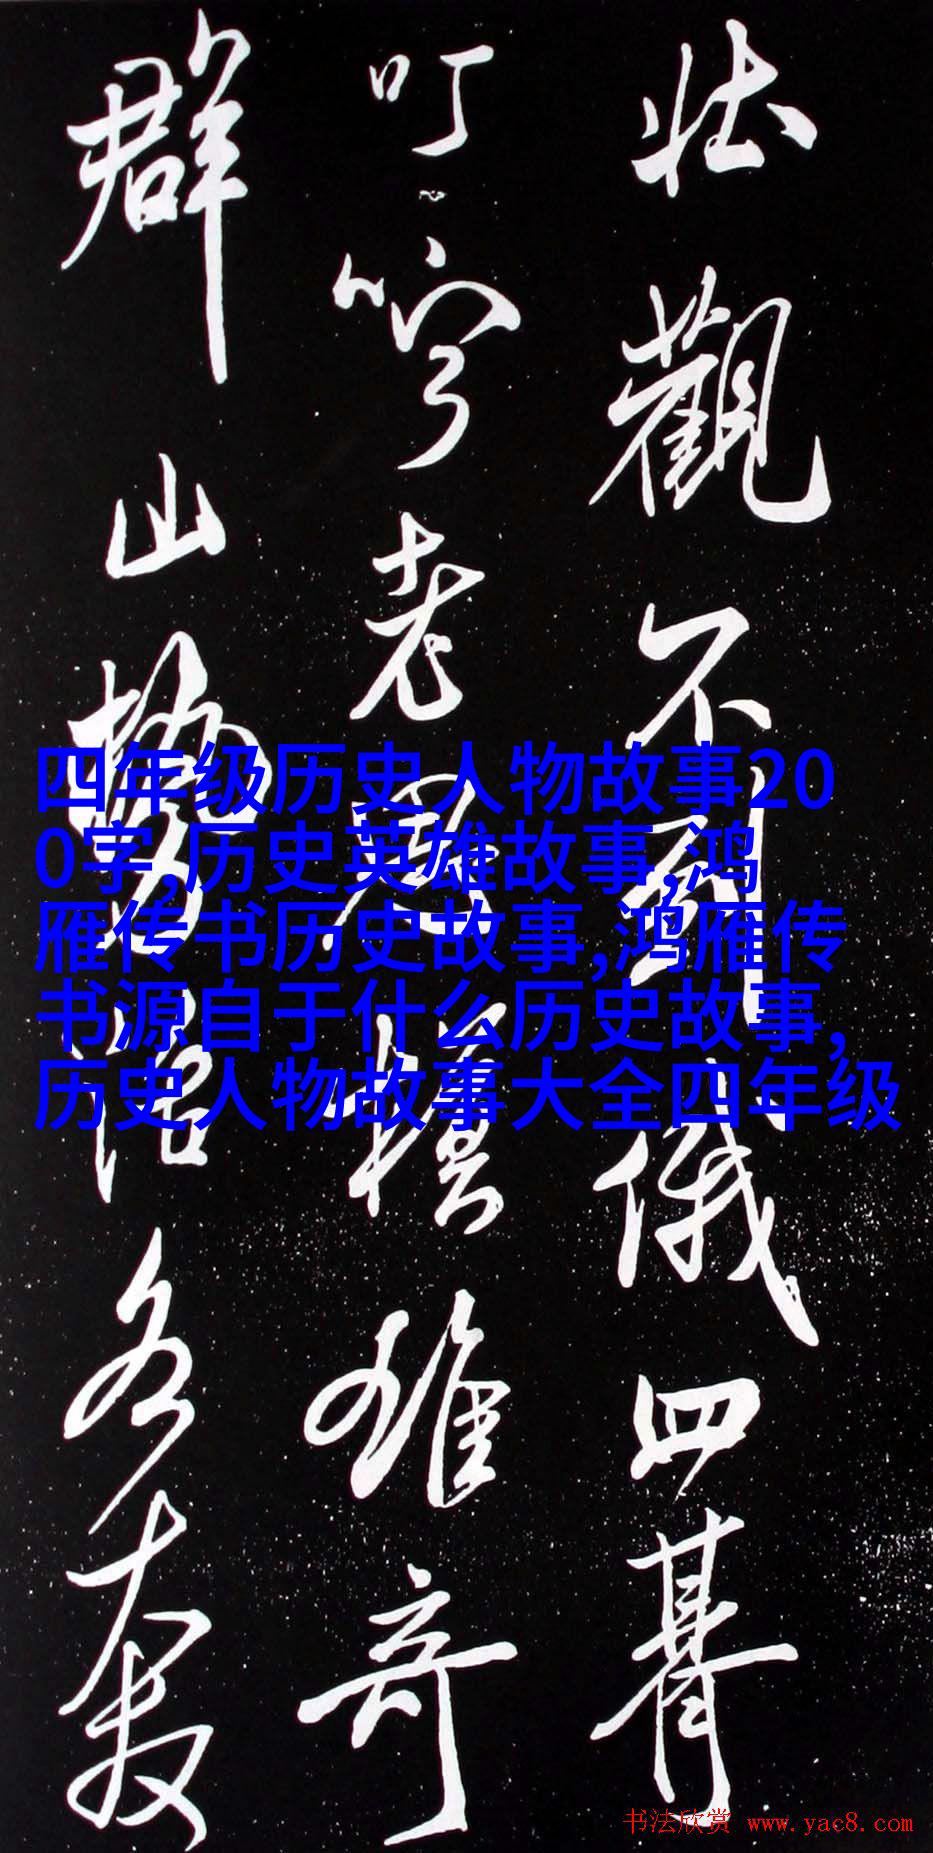 壮觀不到俄四
叮老雄奇
群山勢各
四年级历史人物故事20
0字,历史英雄故事,鸿
雁传书历史故事,鸿雁传
书源自于什么历史故事,
历史人物故事大全四年级
书法欣赏 www.yac8.com